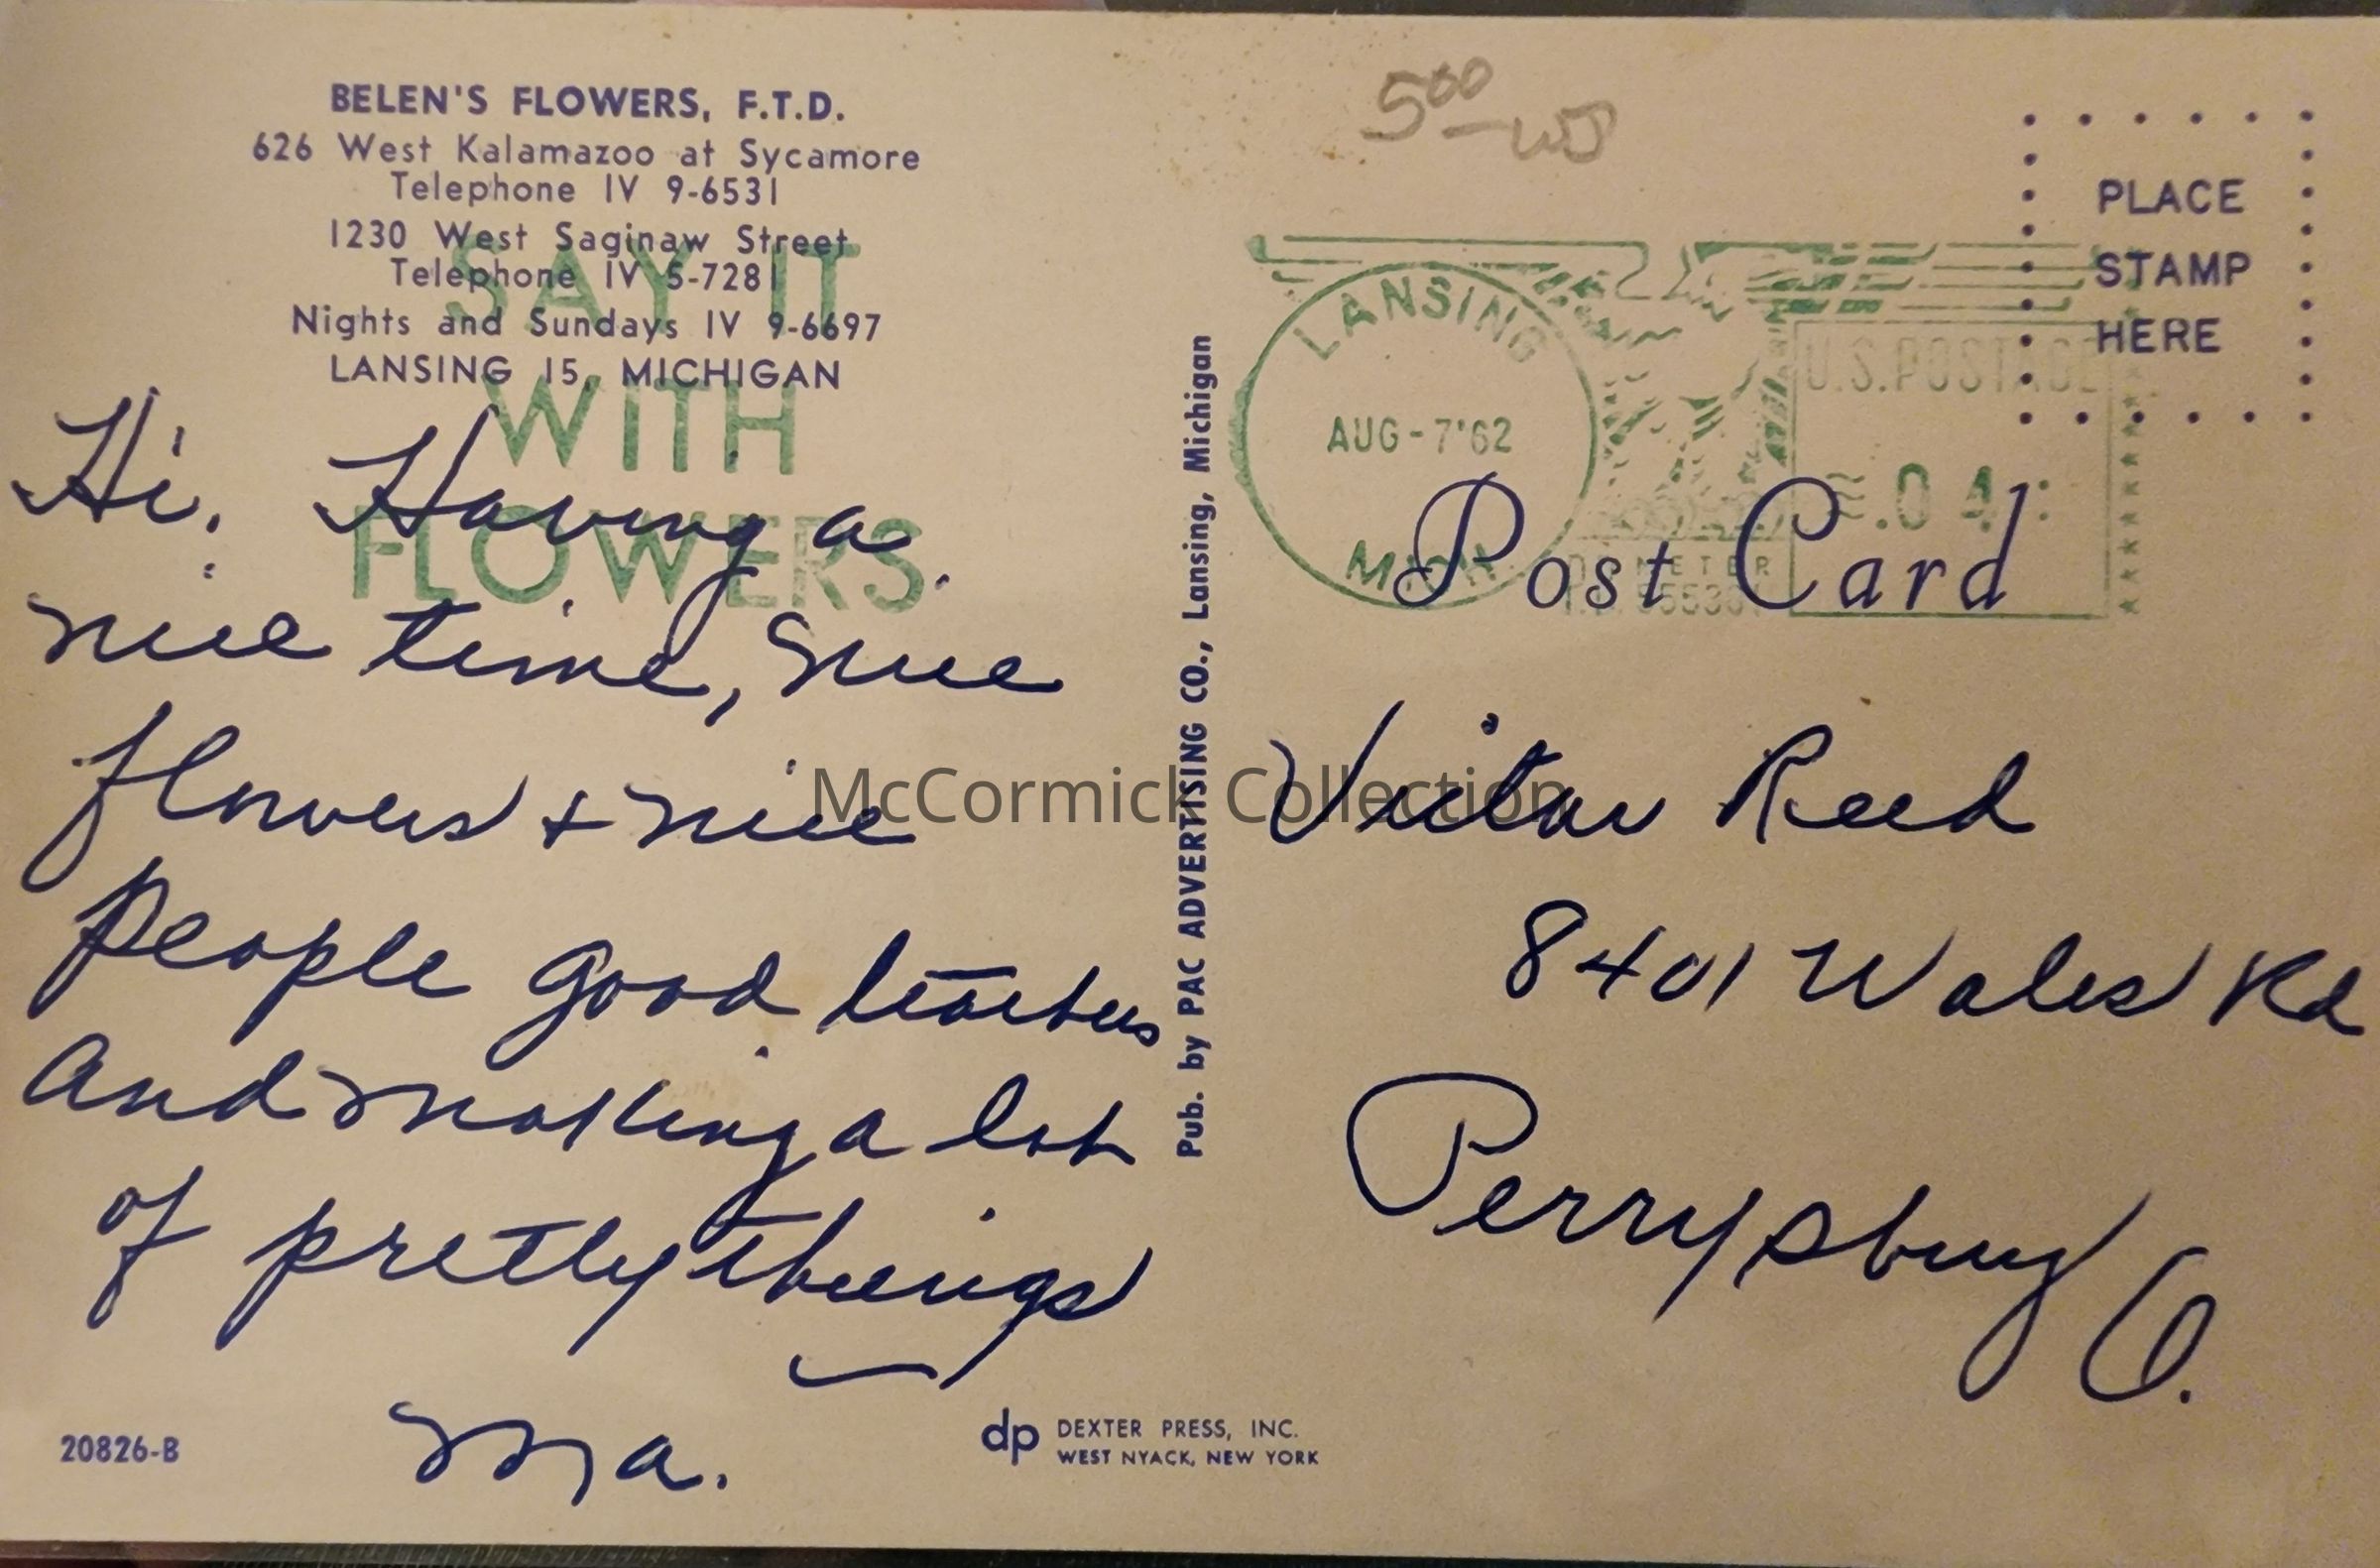 BELEN'S FLOWERS, F.T.D.
626 West Kalamazoo at Sycamore
Telephone IV 9-6531
1230 West Saginaw Street
Telephone IV 5-7281
Nights and Sundays IV 9-6697
LANSING 15, MICHIGAN
SAY IT
WITH
FLOWERS
Hi. Having a
nice time, nice
flowers + nice
people good teachers
and making a lot
of pretty things
Ma.
20826-B
dp DEXTER PRESS, INC.
WEST NYACK, NEW YORK
Pub. by PAC ADVERTISING CO., Lansing, Michigan
5.00
PLACE
STAMP
HERE
LANSING
AUG-7'62
MICH
U.S. POSTAGE
.04
METER
Post Card
Victor Reed
8401 Wales Rd
Perrysburg O.
McCormick Collection